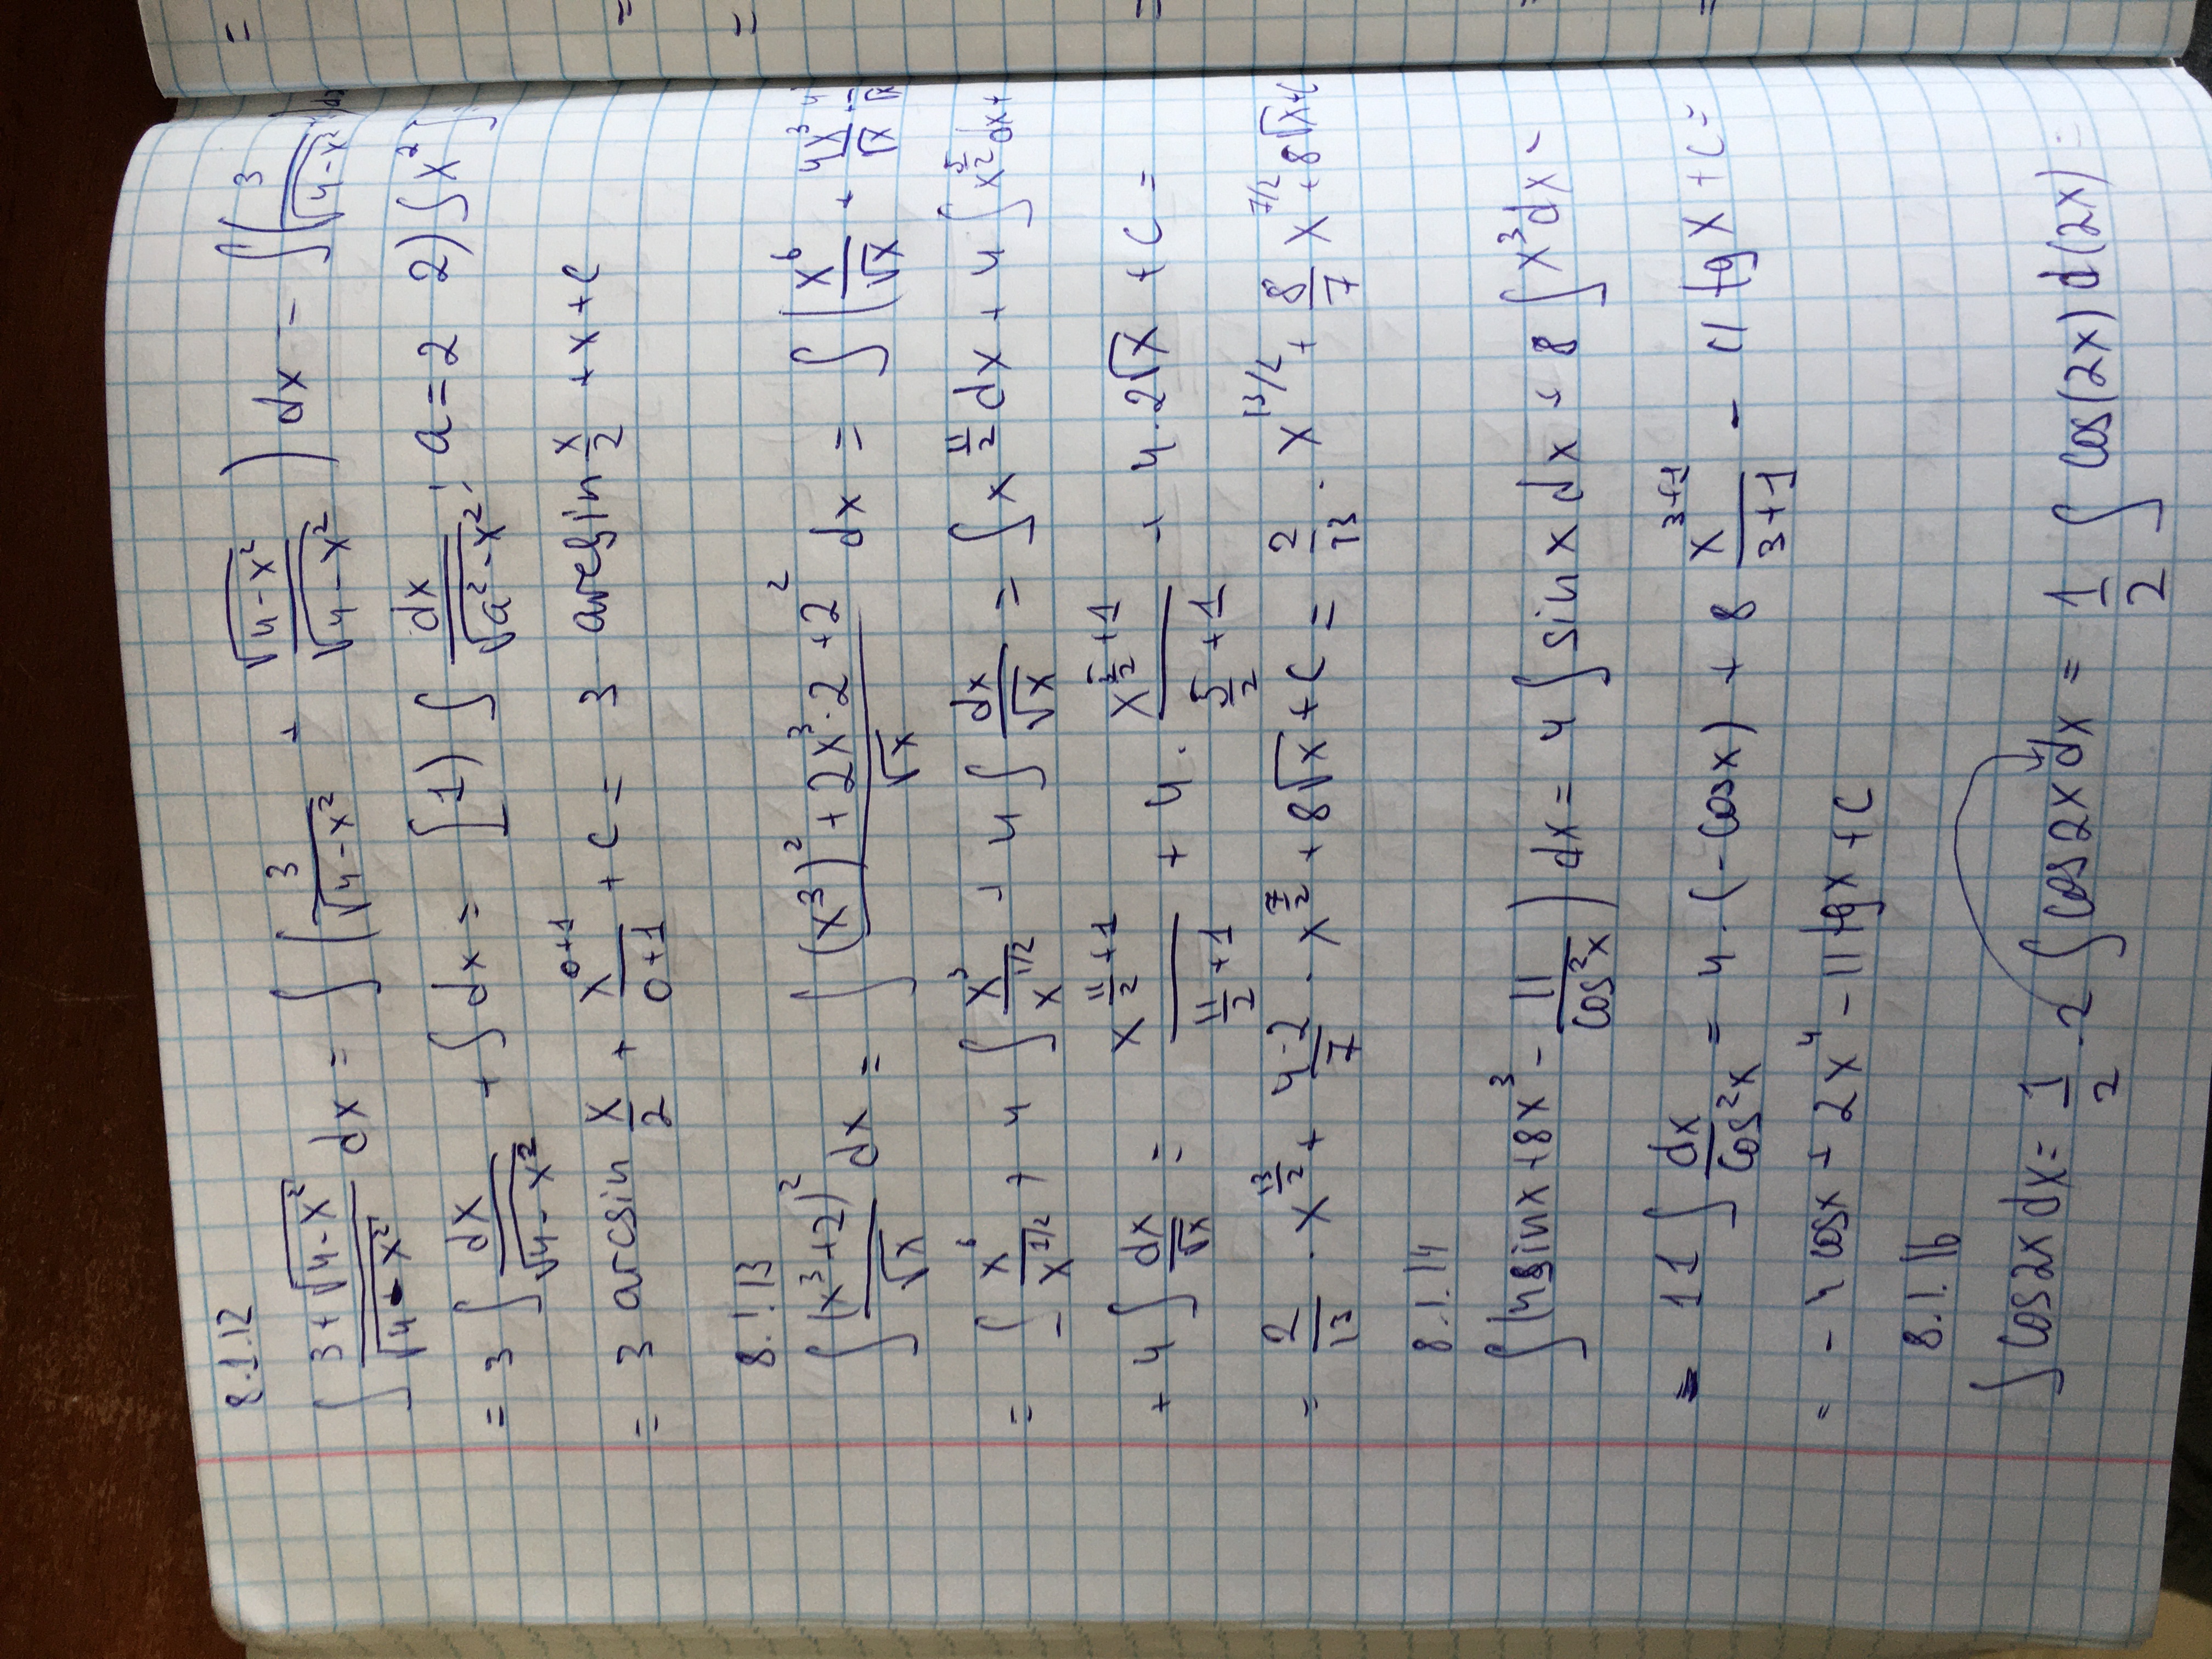 8.1.12
∫ (3+√(4-x²))/√(4-x²) dx = ∫ (3/√(4-x²) + √(4-x²)/√(4-x²)) dx - ∫(3/√(4-x²)) dx
= 3 ∫ dx/√(4-x²) + ∫ dx = [1) ∫ dx/√(a²-x²); a=2 2) ∫x²]
= 3 arcsin x/2 + x^(0+1)/(0+1) + c = 3 arcsin x/2 + x + c
8.1.13
∫ (x³+2)²/√x dx = ∫ ((x³)² + 2x³·2 + 2²)/√x dx = ∫ (x⁶/√x + 4x³/√x 4/√x
= ∫ x⁶/x^(1/2) + 4 ∫ x³/x^(1/2) + 4 ∫ dx/√x = ∫ x^(11/2) dx + 4 ∫ x^(5/2) dx +
+ 4 ∫ dx/√x = x^(11/2+1)/(11/2+1) + 4 · x^(5/2+1)/(5/2+1) + 4·2√x + c =
= 2/13 · x^(13/2) + 4·2/7 · x^(7/2) + 8√x + c = 2/13 · x^(13/2) + 8/7 x^(7/2) + 8√x + c
8.1.14
∫(4sinx + 8x³ - 11/cos²x) dx = 4 ∫ sin x dx + 8 ∫ x³dx -
- 11 ∫ dx/cos²x = 4·(-cosx) + 8 x^(3+1)/(3+1) - 11 tg x + c =
= - 4 cosx + 2x⁴ - 11tgx + c
8.1.16
∫ cos2x dx = 1/2 · 2 ∫ cos2x dx = 1/2 ∫ cos(2x) d(2x) =